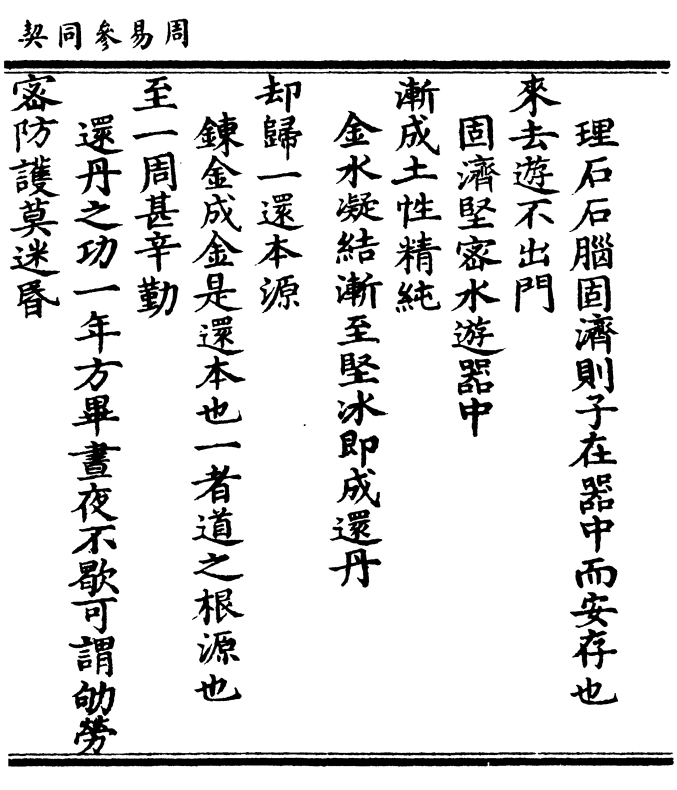 周易參同契
理石石腦固濟則子在器中而安存也
來去遊不出門
固濟堅密水遊器中
漸成土性精純
金水凝結漸至堅冰即成還丹
却歸一還本源
鍊金成金是還本也一者道之根源也
至一周甚辛勤
還丹之功一年方畢晝夜不歇可謂劬勞
密防護莫迷昬